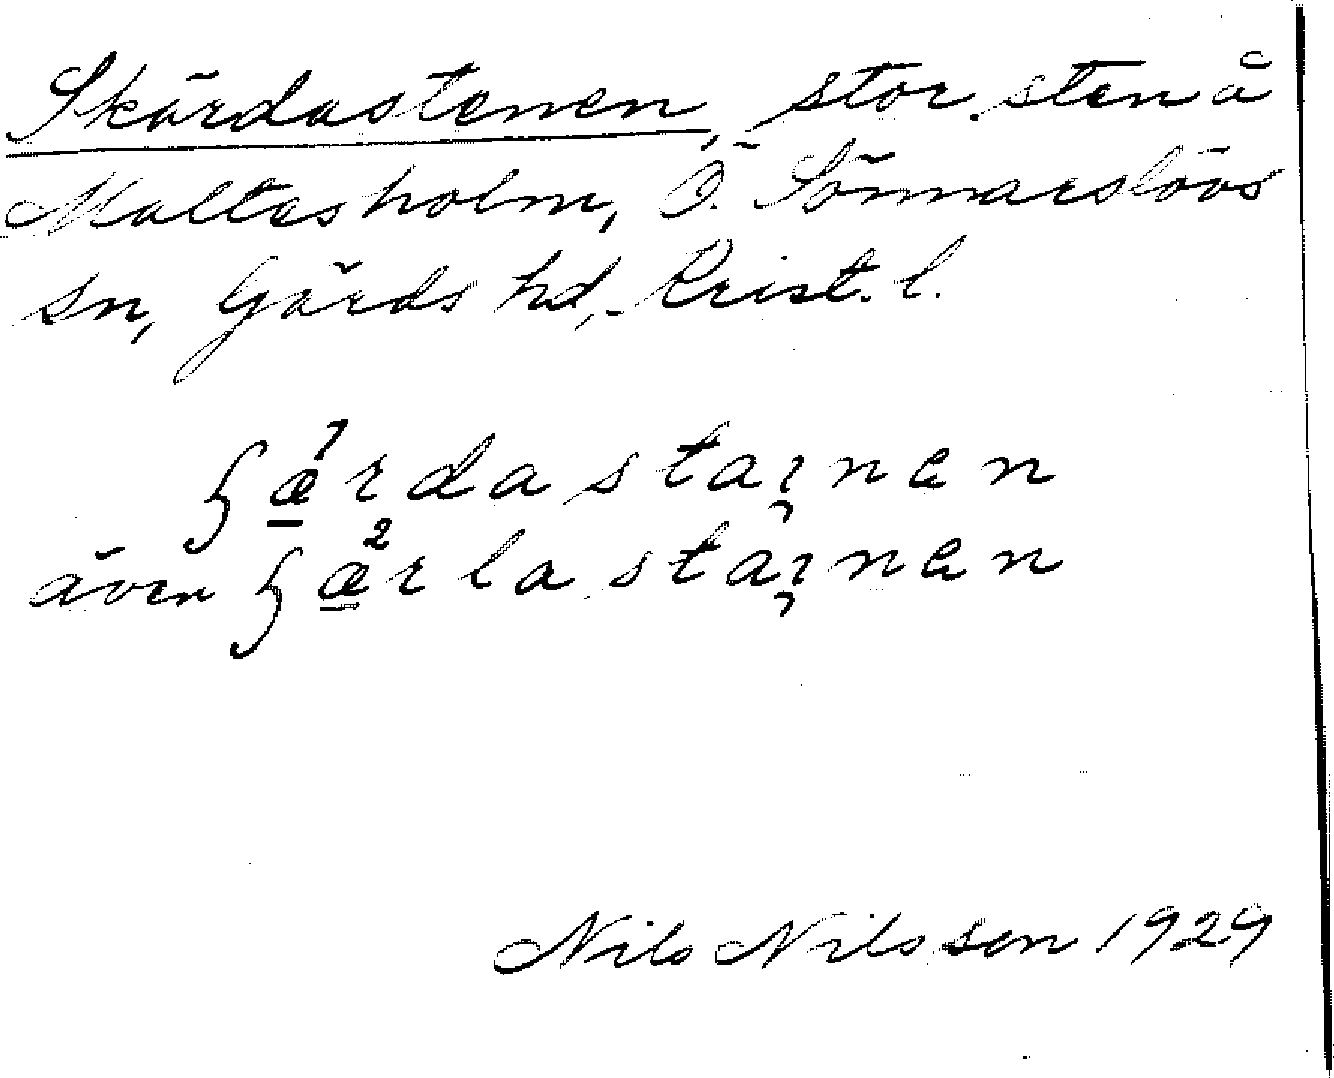 Skärdastenen, stor sten å
Maltesholm, Ö. Sönnarslövs
sn, Gärds hd, Krist. l.
ʂæ̠⁷rdastaı̯nen
även ʂæ̠²rlastaı̯nen
Nils Nilsson 1929